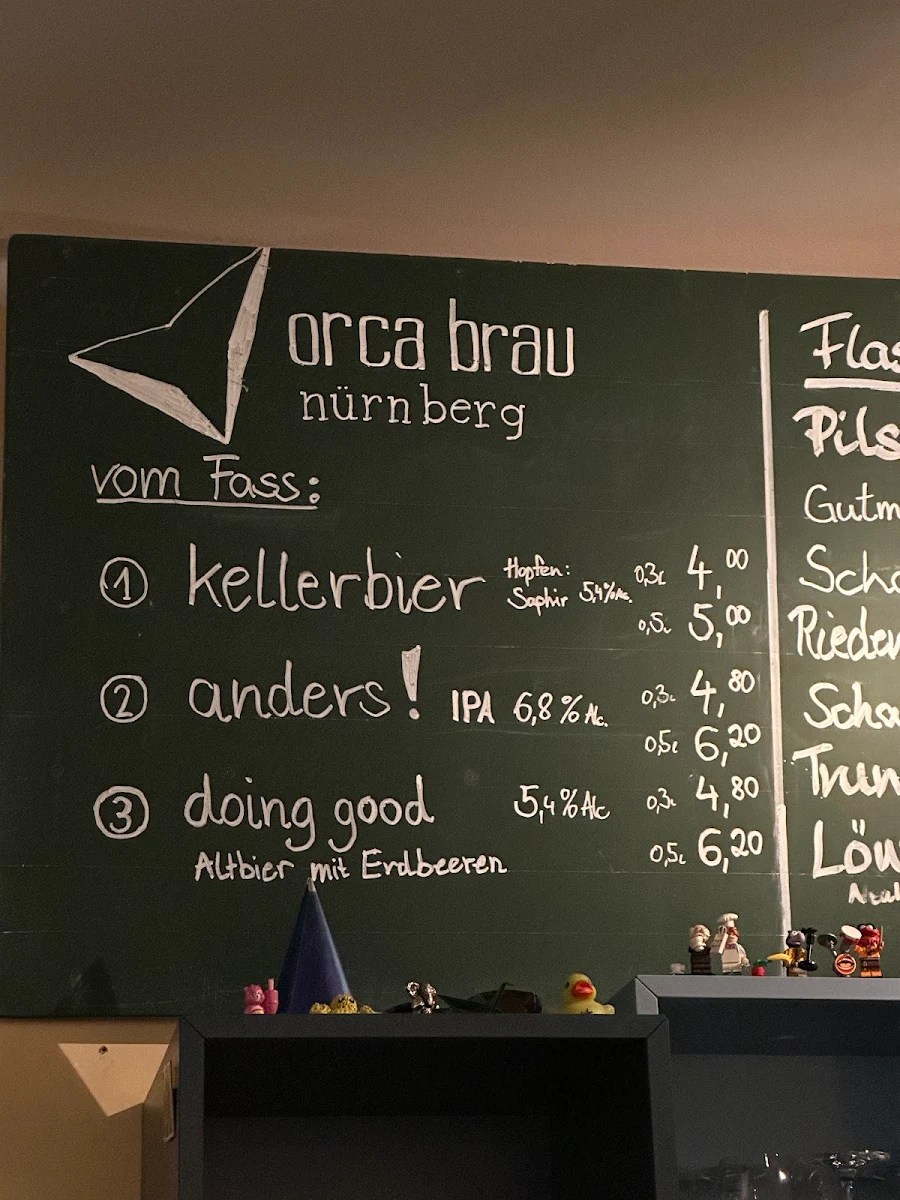 orca brau
nürnberg
vom Fass:
1 kellerbier Hopfen: 0,3L 4,00
Saphir 5,4%Alc. 0,5L 5,00
2 anders! IPA 6,8%Alc. 0,3L 4,80
0,5L 6,20
3 doing good 5,4%Alc 0,3L 4,80
Altbier mit Erdbeeren 0,5L 6,20
Flas
Pils
Gutm
Scho
Rieden
Scha
Trun
Löw